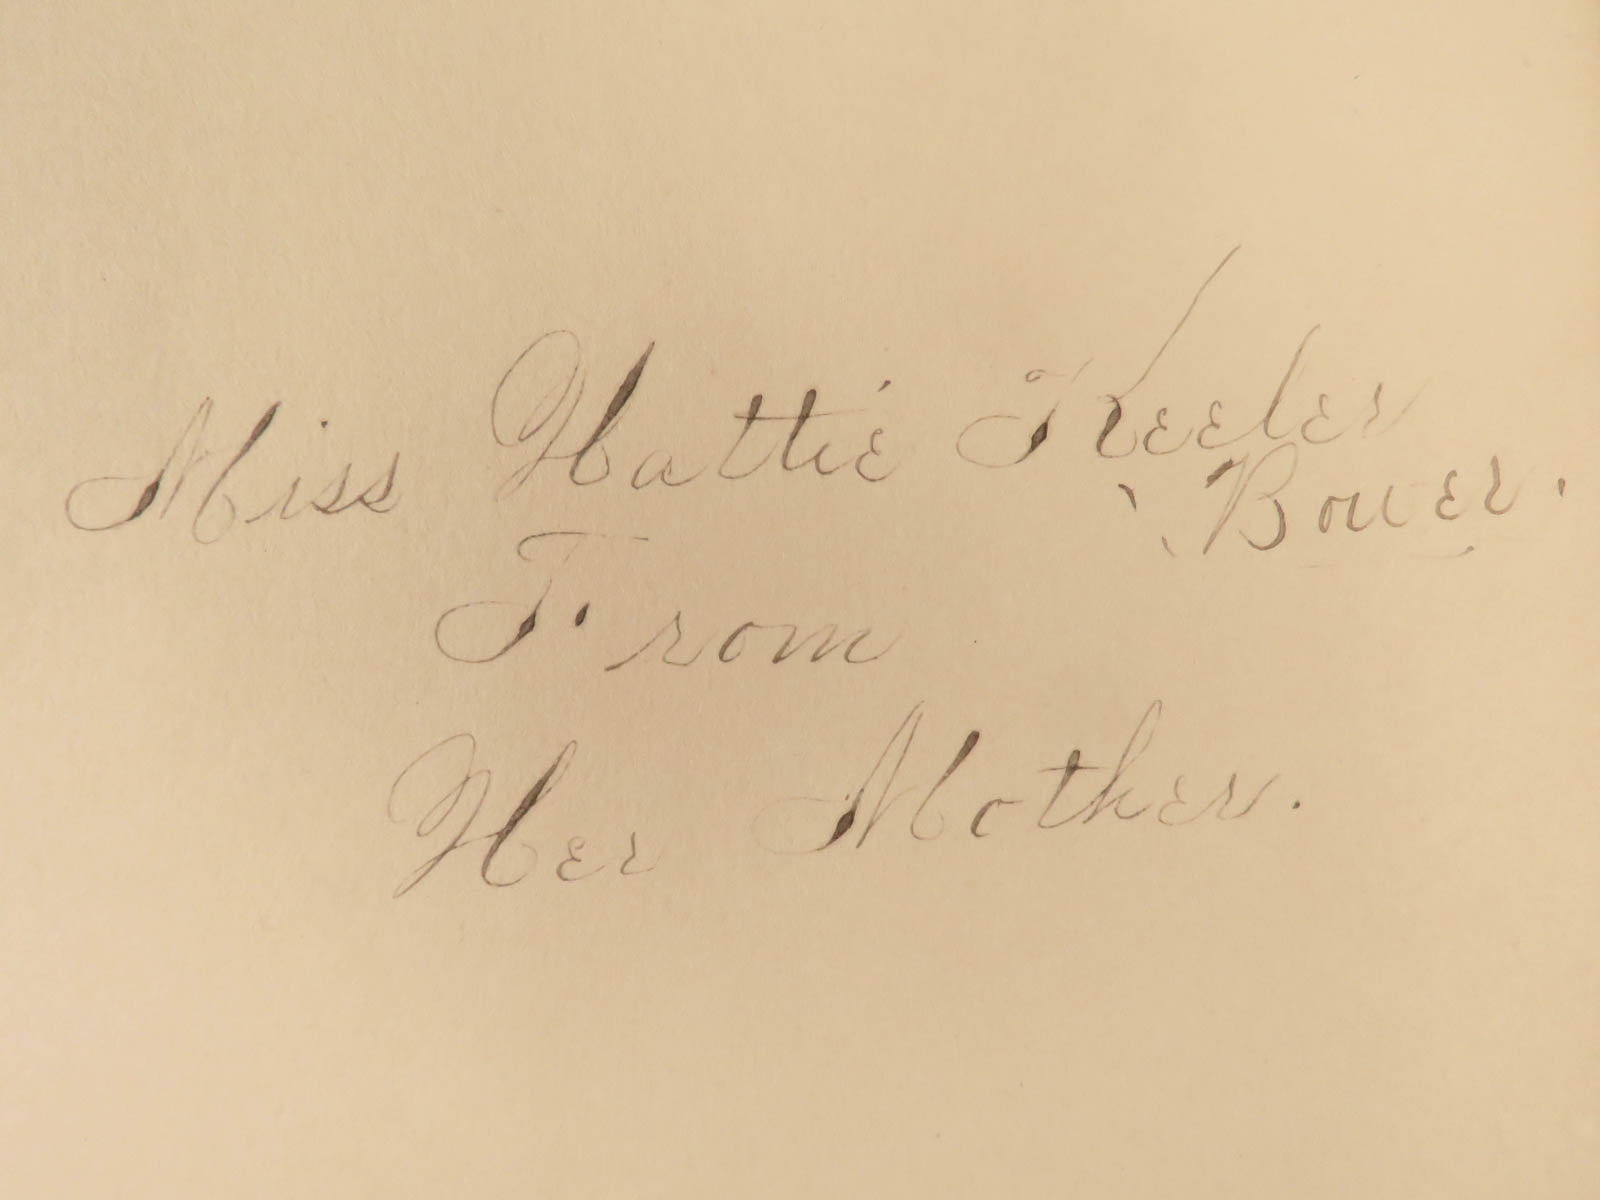 Miss Hattie Keeler
Bower.
From
Her Mother.